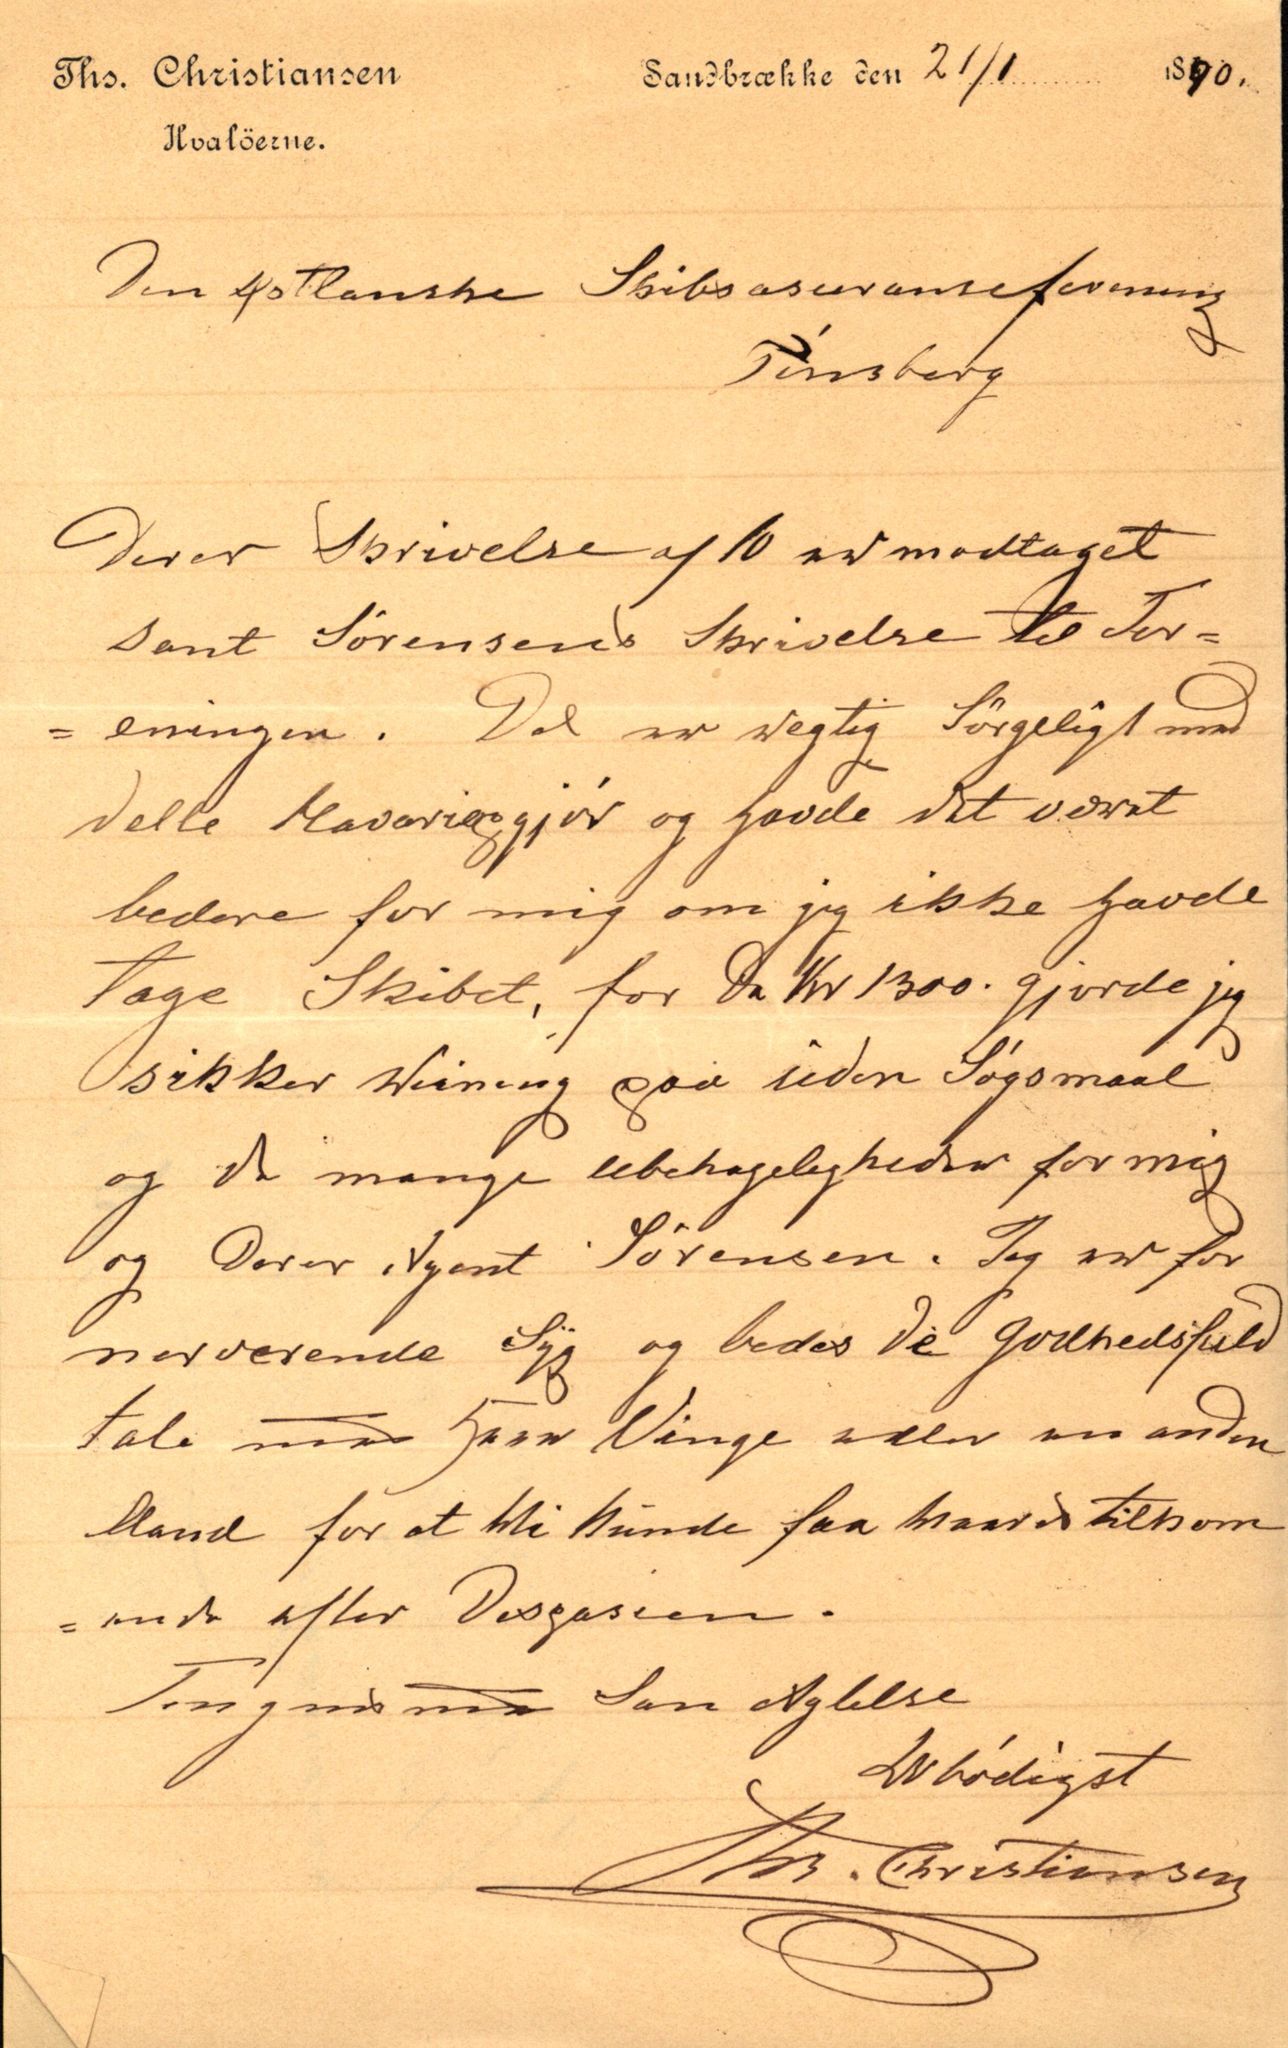 Ths. Christiansen
Hvalöerne.
Sandbrække den 21/1 1890.
Den østlanske Skibsasuranseforening
Tønsberg
Derer Skrivelse af 10 er modtaget
samt Sörensens Skrivelse til For=
=eningen. Det er Vegtig Sörgeligt med
dette Havariopgjör og havde det været
bedere for mig om jeg ikke havde
tage Skibet, for Da Kr 1300. gjorde jeg
sikker Vinning paa uden Sögsmaal
og de mange ubehageligheder for mig
og Derer Agent Sörensen. Jeg er for
nerverende Syg og bedes De Godhedsfuld
tale med Herr Vinge eller en anden
Mand for at Vi kunde faa Vaares tilkom
=ende efter Despasien.
Tengnes med San Agtelse
Erbödigst
Ths. Christiansen